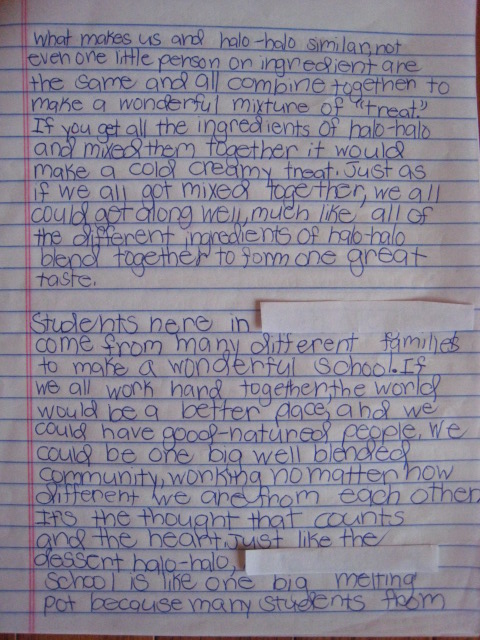 What makes us and halo-halo similar, not
even one little person or ingredient are
the same and all combine together to
make a wonderful mixture of "treat."
If you get all the ingredients of halo-halo
and mixed them together it would
make a cold creamy treat. Just as
if we all got mixed together, we all
could get along well, much like all of
the different ingredients of halo-halo
blend together to form one great
taste.
Students here in
come from many different families
to make a wonderful school. If
we all work hand together, the world
would be a better pace, and we
could have good-natured people. We
could be one big well blended
community, working no matter how
different we are from each other
It's the thought that counts
and the heart. Just like the
dessert halo-halo,
school is like one big melting
pot because many students from